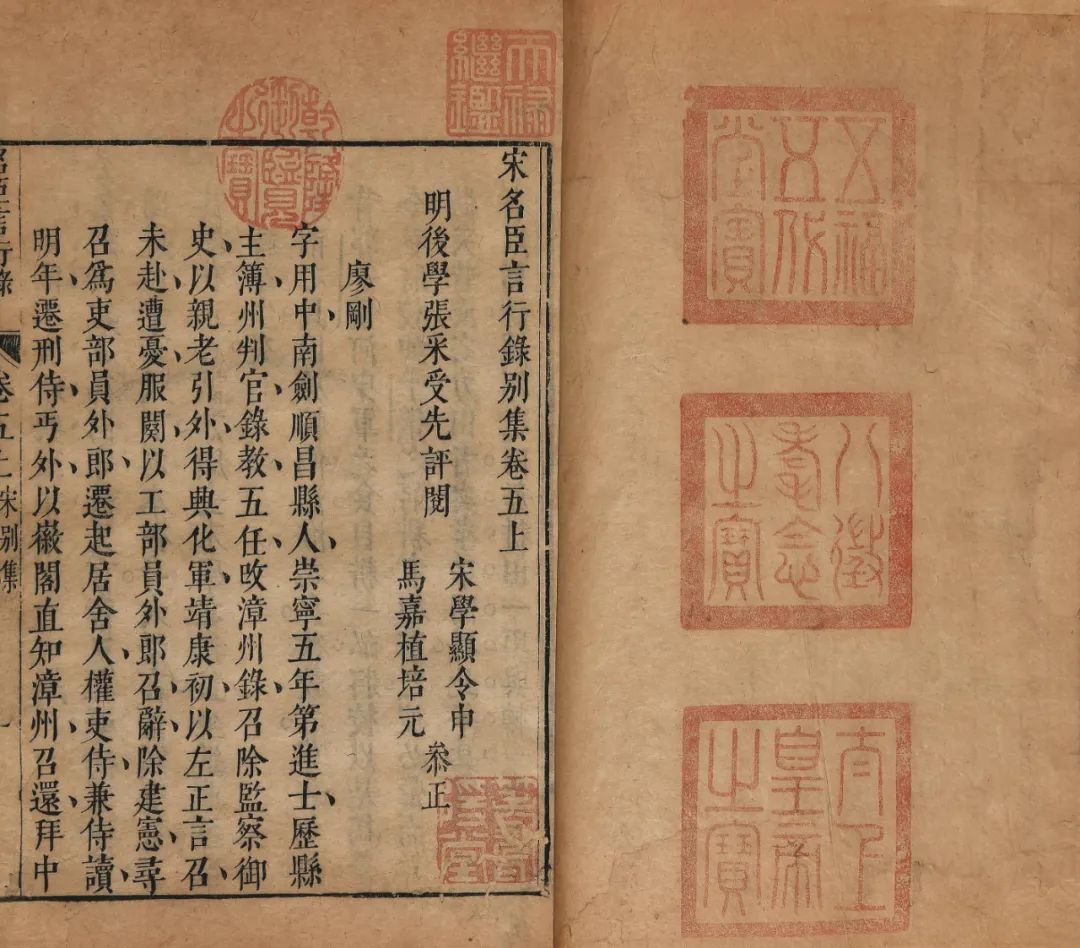 五福五代堂寶
八徵耄念之寶
太上皇帝之寶
天祿繼鑑
乾隆御覽之寶
宋名臣言行錄别集卷五上
明後學張采受先評閱
宋學顯令申
馬嘉植培元
叅正
廖剛
字用中南劍順昌縣人崇寧五年第進士歷縣
主簿州判官錄教五任改漳州錄召除監察御
史以親老引外得典化軍靖康初以左正言召
未赴遭憂服闋以工部員外郎召辭除建憲尋
召爲吏部員外郎遷起居舍人權吏侍兼侍讀
明年遷刑侍丐外以徽閣直知漳州召還拜中
名臣言行錄
卷五上宋别集
一